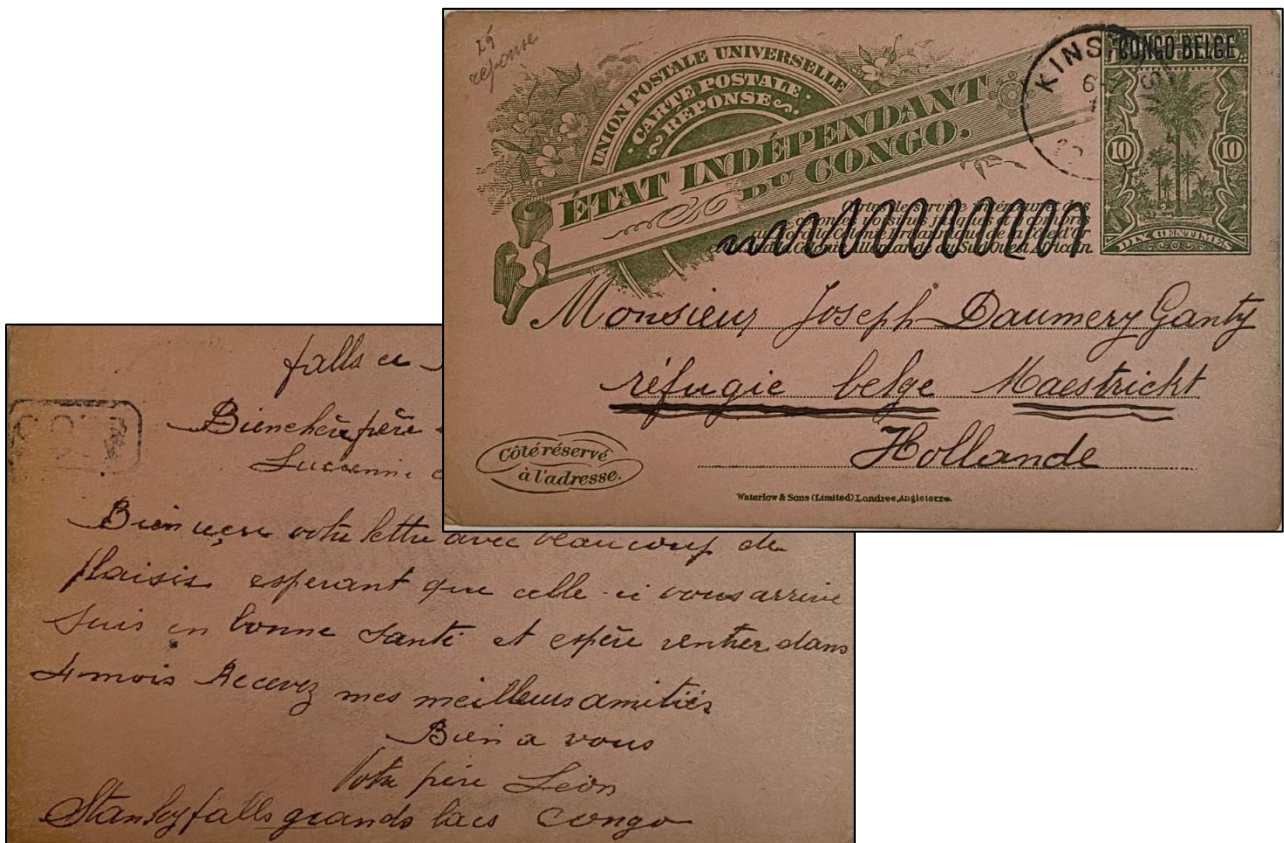 25
reponse
UNION POSTALE UNIVERSELLE
CARTE POSTALE
REPONSE
ÉTAT INDÉPENDANT
DU CONGO.
KINS
CONGO BELGE
10 10
DIX CENTIMES
Monsieur Joseph Daumery Ganty
réfugie belge Maestricht
Hollande
Côté réservé
à l'adresse.
Waterlow & Sons (Limited) Londres, Angleterre.
falls ce
Bien cher frère
Lucienne
Bien reçu votre lettre avec beaucoup de
plaisir esperant que celle-ci vous arrive
suis en bonne santé et espère rentrer dans
4 mois Recevez mes meilleurs amitiés
Bien a vous
Votre frère Léon
Stanleyfalls grands lacs Congo